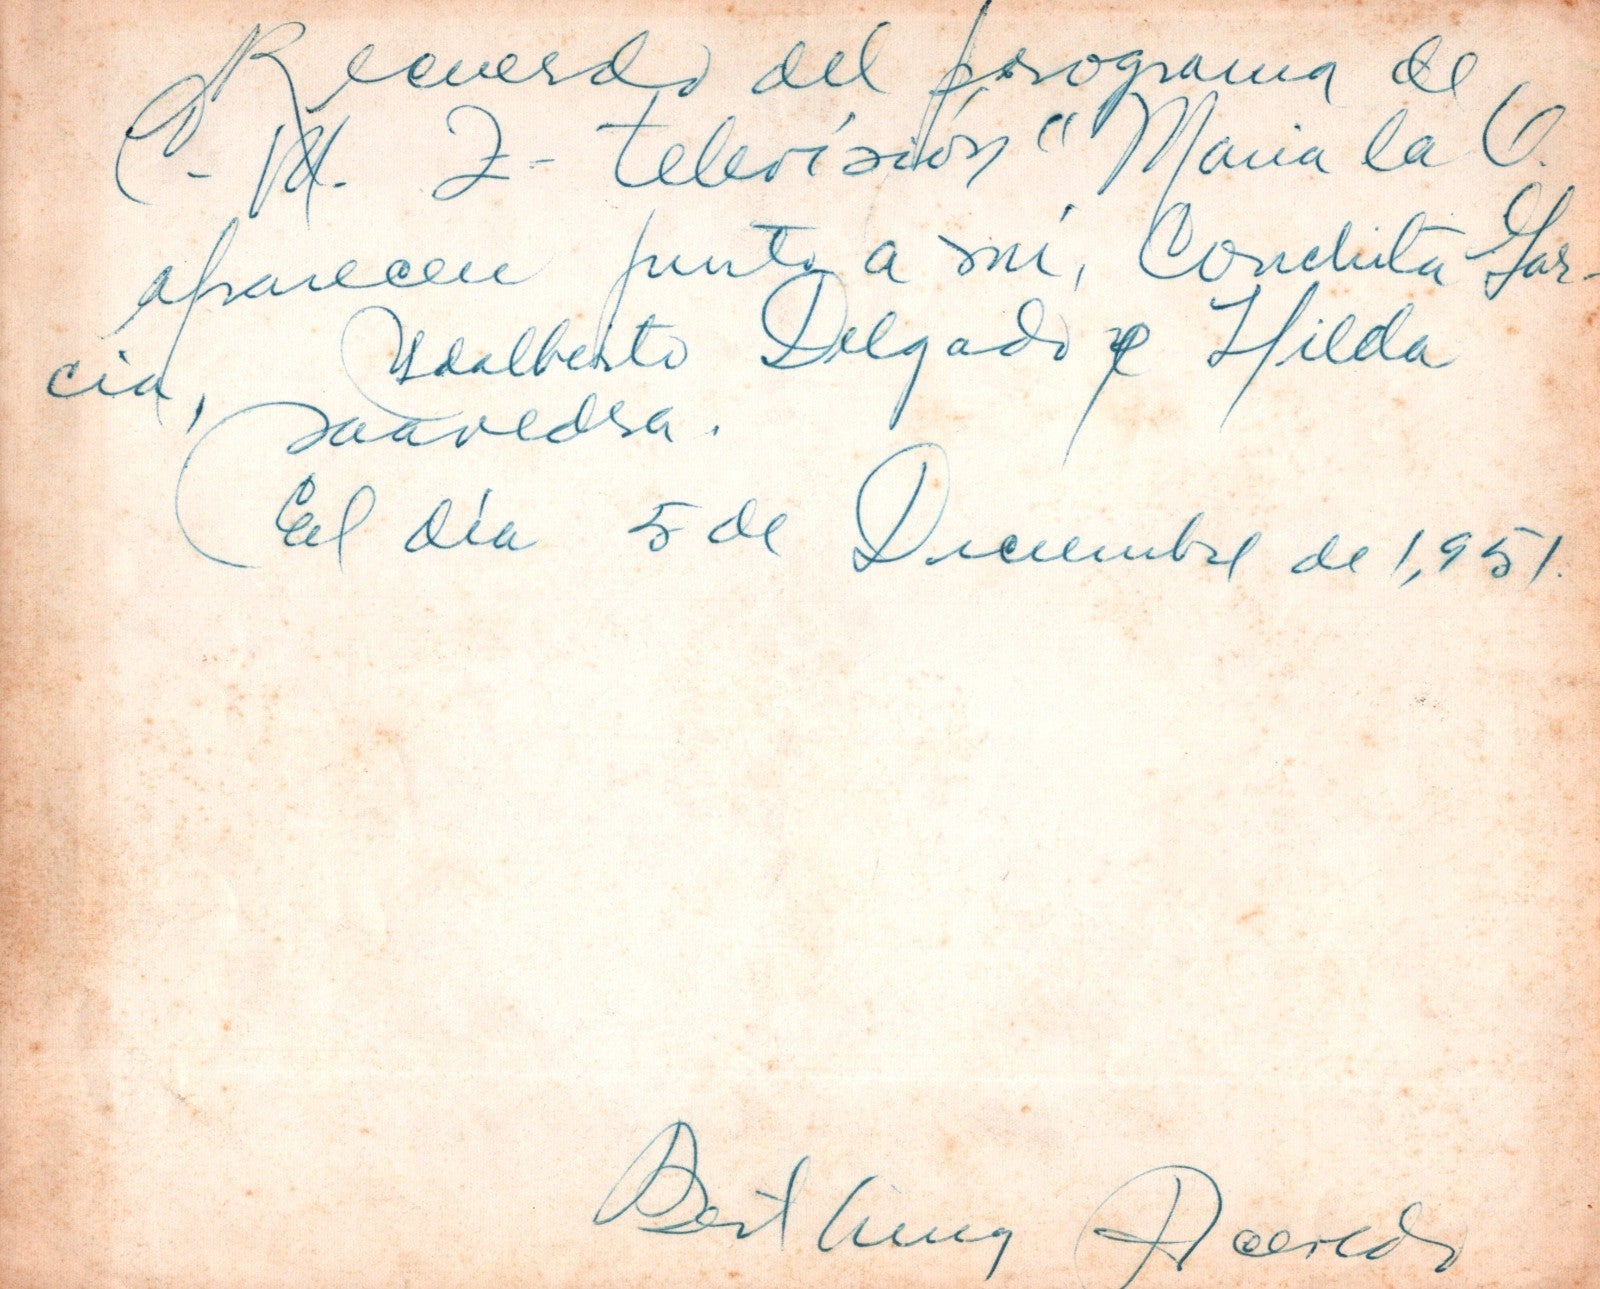 Recuerdo del programa de
C.-M. Z- televisión "Maria la O.
aparecen junto a mí, Conchita Gar-
cia, Adalberto Delgado y Hilda
Saavedra.
El día 5 de Diciembre de 1,951.
Acevedo